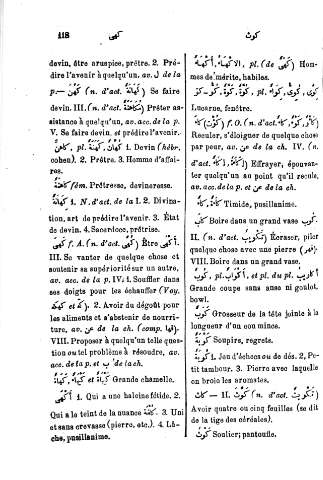 118
كهى
كوث
devin, être aruspice, prêtre. 2. Pré-
dire l'avenir à quelqu'un, av. ل de la
p.— كَهُنَ (n. d'act. كَهَانَة) Se faire
devin. III. (n. d'act. مُكَاهَنَة) Prêter as-
sistance à quelqu'un, av. acc. de la p.
V. Se faire devin, et prédire l'avenir.
كَاهِن, pl. كُهَّان, كَهَنَة 1. Devin (hébr.
cohen). 2. Prêtre. 3. Homme d'affai-
res.
كَاهِنَة fém. Prêtresse, devineresse.
كِهَانَة 1. N d'act. de la I. 2. Divina-
tion, art de prédire l'avenir. 3. État
de devin. 4. Sacerdoce, prêtrise.
III. Se vanter de quelque chose et
soutenir sa supériorité sur un autre,
av. acc. de la p. IV. 1. Souffler dans
ses doigts pour les échauffer (Voy.
2. Avoir du dégoût pour
les aliments et s'abstenir de nourri-
ture, av. عن de la ch.
VIII. Proposer à quelqu'un une ques-
tion ou tel problème à résoudre, av.
acc. de la p. et ب de la ch.
Grande chamelle.
أَكْهَى 1. Qui a une haleine fétide. 2.
Qui a le teint de la nuance كُهْبَة. 3. Uni
et sans crevasse (pierre, etc.). 4. Lâ-
che, pusillanime.
pl. (de كَهِىّ) Hom-
mes de mérite, habiles.
كَوّ, كَوَّة, pl. كُوًى
Lucarne, fenêtre.
كَاءَ f. O. (n. d'act. كَوْء)
Reculer, s'éloigner de quelque chose
par peur, av. عن de la ch. IV. (n.
d'act. إِكَاءَة) Effrayer, épouvan-
ter quelqu'un au point qu'il recule,
av. acc. de la p. et عن de la ch.
Timide, pusillanime.
كَابَ Boire dans un grand vase.
II. (n. d'act. تَكْوِيب) Écraser, piler
quelque chose avec une pierre (فهر)
VIII. Boire dans un grand vase.
كُوب, pl. أَكْوَاب, et pl. du pl. أَكَاوِيب
Grande coupe sans anse ni goulot,
bowl.
كَوَب Grosseur de la tête jointe à la
longueur d'un cou mince.
كَوْبَة Soupirs, regrets.
كُوبَة 1. Jeu d'échecs ou de dés. 2. Pe-
tit tambour. 3. Pierre avec laquelle
on broie les aromates.
كاث — II. كَوَّثَ (n. d'act. تَكْوِيث)
Avoir quatre ou cinq feuilles (se dit
de la tige des céréales).
كَوْث Soulier; pantoufle.